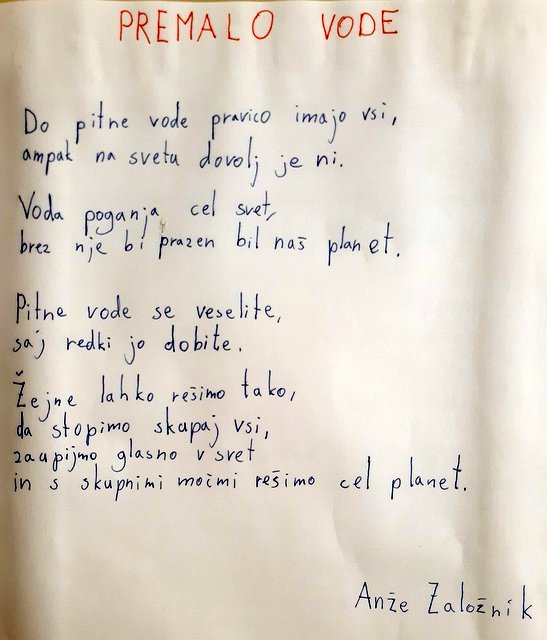 PREMALO VODE
Do pitne vode pravico imajo vsi,
ampak na svetu dovolj je ni.
Voda poganja cel svet,
brez nje bi prazen bil naš planet.
Pitne vode se veselite,
saj redki jo dobite.
Žejne lahko rešimo tako,
da stopimo skupaj vsi,
zaupijmo glasno v svet
in s skupnimi močmi rešimo cel planet.
Anže Založnik